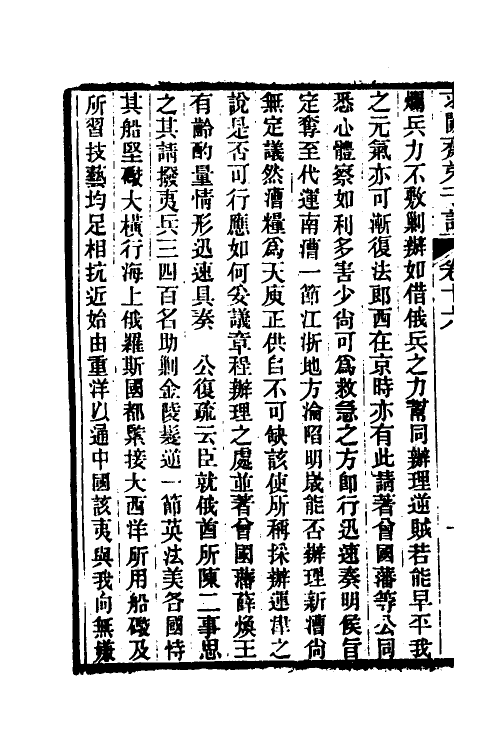 求闕齋弟子記　卷十六
爛兵力不敷剿辦如借俄兵之力幫同辦理逆賊若能早平我
之元氣亦可漸復法郎西在京時亦有此請著曾國藩等公同
悉心體察如利多害少尙可爲救急之方卽行迅速奏明候旨
定奪至代運南漕一節江浙地方淪陷明歲能否辦理新漕尙
無定議然漕糧爲天庾正供自不可缺該使所稱採辦運津之
說是否可行應如何妥議章程辦理之處並著曾國藩薛煥王
有齡酌量情形迅速具奏　公復疏云臣就俄酋所陳二事思
之其請撥夷兵三四百名助剿金陵髮逆一節英法美各國恃
其船堅礮大橫行海上俄羅斯國都緊接大西洋所用船礮及
所習技藝均足相抗近始由重洋以通中國該夷與我向無嫌